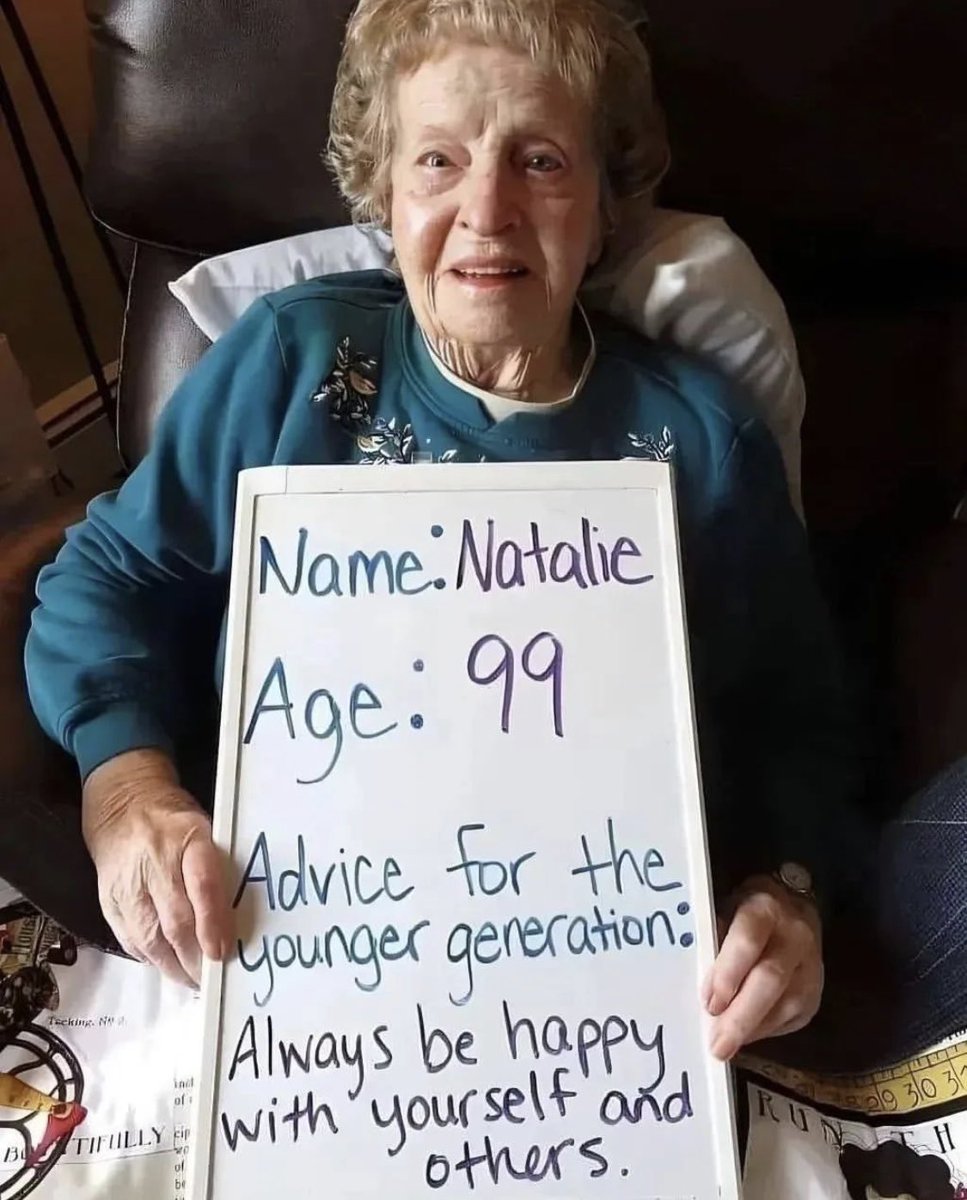 Name: Natalie
Age: 99
Advice for the
younger generation:
Always be happy
with yourself and
others.
29 30 31
RUN
TH